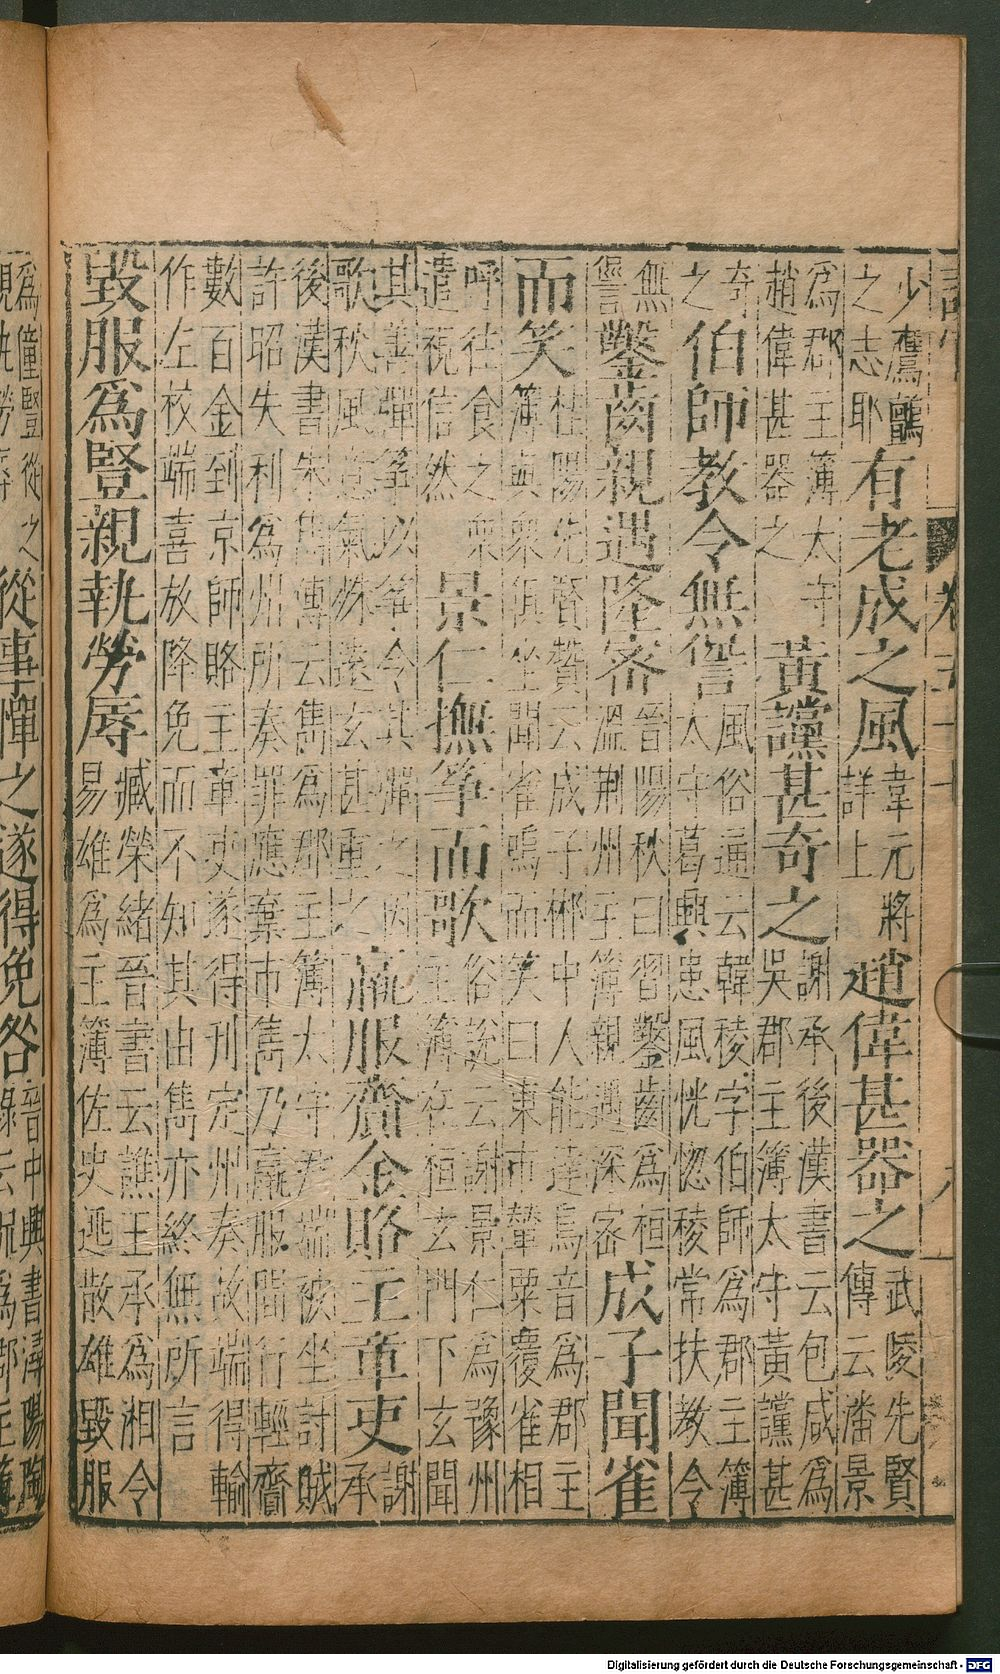 少鷹鸇
之志耶
有老成之風
韋元將
詳上
趙偉甚器之
武陵先賢
傳云潘景
為郡主簿太守
趙偉甚器之
黃讜甚奇之
謝承後漢書云包咸為
吳郡主簿太守黃讜甚
奇
之
伯師教令無諐
風俗通云韓稜字伯師為郡主簿
太守葛興患風恍惚稜常扶教令
無
諐
鑿齒親遇隆密
晉陽秋曰習鑿齒為桓
溫荆州主簿親遇深密
成子聞雀
而笑
桂陽先賢贊云成子郴中人能達鳥音為郡主
簿與衆俱坐聞雀鳴而笑曰東市輦粟覆雀相
呼往食之衆
遣視信然
景仁撫筝而歌
俗說云謝景仁為豫州
主簿在桓玄門下玄聞
其善彈筝以筝令其彈之因
歌秋風意氣殊遠玄甚重之
羸服齎金賂主章吏
謝
承
後漢書朱雋傳云雋為郡主簿太守尹端被坐討賊
許昭失利為州所奏罪應棄市雋乃羸服間行輕齎
數百金到京師賂主章吏遂得刊定州奏故端得輸
作左校端喜放降免而不知其由雋亦終無所言
毀服為豎親執勞辱
臧榮緒晉書云譙王承為湘令
易雄為主簿佐史逃散雄毀服
為僮豎從之
親執勞辱
從事憚之遂得免咎
晉中興書潯陽陶
錄云侃為郡主簿
Digitalisierung gefördert durch die Deutsche Forschungsgemeinschaft - DFG